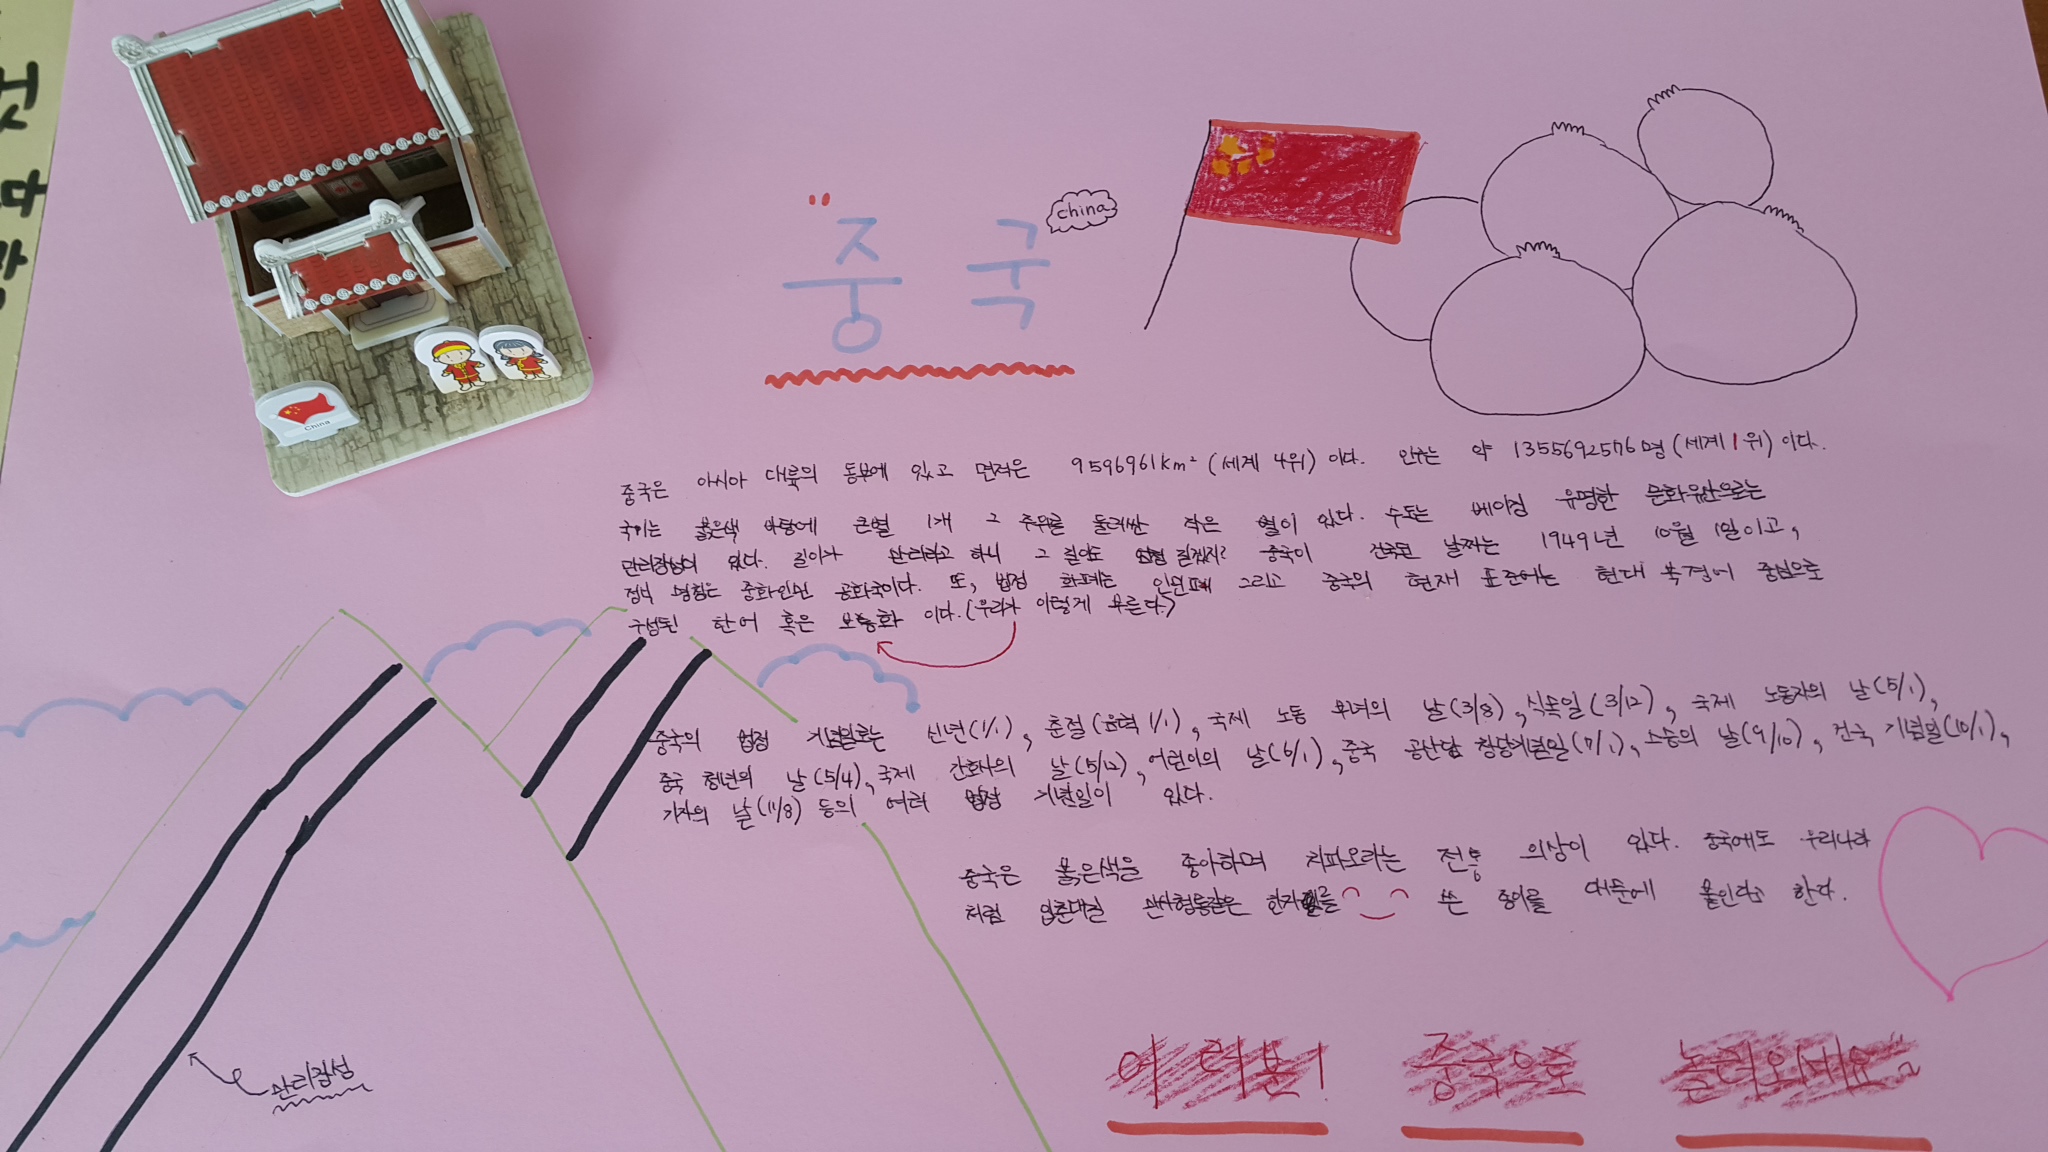 중국
china
China
중국은 아시아 대륙의 동부에 있고 면적은 9596961km² (세계 4위) 이다. 인구는 약 1355692576명 (세계 1위) 이다.
국기는 붉은색 바탕에 큰별 1개 그 주위를 둘러싼 작은 별이 있다. 수도는 베이징 유명한 문화유산으로는
만리장성이 있다. 길이가 만리라고 하니 그 길이도 길겠지? 중국이 건국된 날짜는 1949년 10월 1일이고,
정식 명칭은 중화인민 공화국이다. 또, 법정 화폐는 인민폐 그리고 중국의 현재 표준어는 현대 북경어 중심으로
구성된 한어 혹은 보통화 이다. (우리가 이렇게 부른다.)
중국의 법정 기념일로는 신년(1/1), 춘절(음력 1/1), 국제 노동 부녀의 날(3/8), 식목일(3/12), 국제 노동자의 날(5/1),
중국 청년의 날(5/4), 국제 간호사의 날(5/12), 어린이의 날(6/1), 중국 공산당 창당기념일(7/1), 스승의 날(9/10), 건국 기념일(10/1),
기자의 날(11/8) 등의 여러 법정 기념일이 있다.
중국은 붉은색을 좋아하며 치파오라는 전통 의상이 있다. 중국에도 우리나라
처럼 입춘대길 만사형통같은 한자 쓴 종이를 대문에 붙인다고 한다.
만리장성
여러분! 중국으로 놀러오세요~